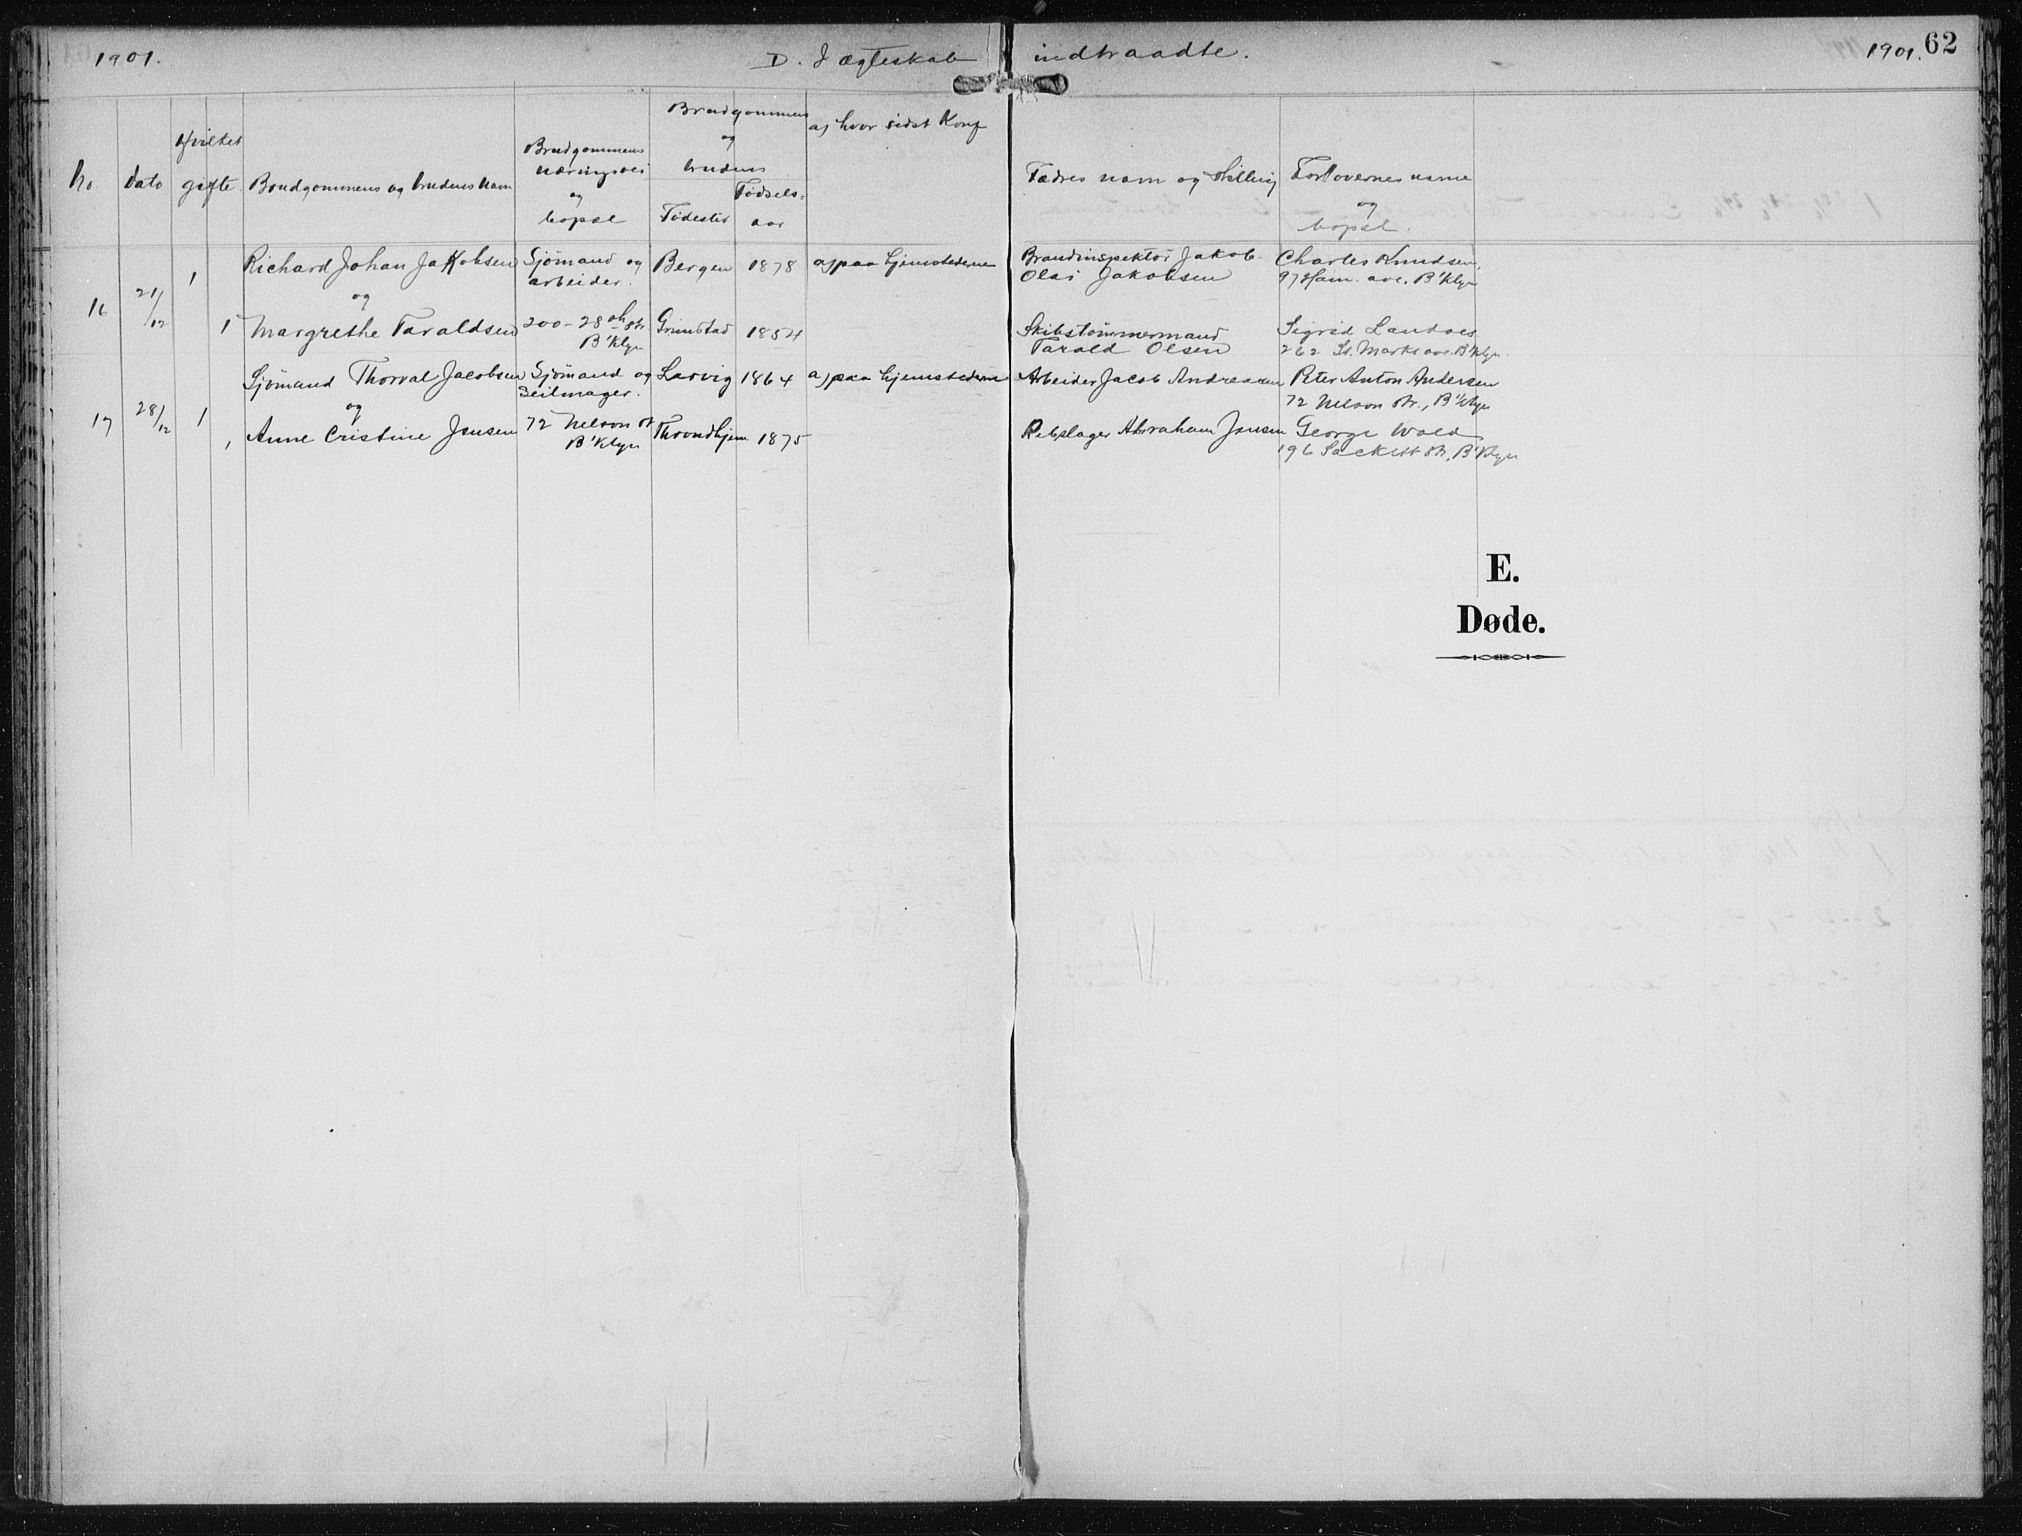 1901. D. I ægteskab indtraadte. 1901. 62
No. Dato Hvilket gifte. Brudgommens og brudens navn
Brudgommens næringsvei og bopæl
Brudgommens og brudens Fødested Fødsels- aar
a) hvor sidst Konf
Fædres navn og stilling
Forlovernes navne og bopæl.
16 21/12 1 Richard Johan Jakobsen Sjömand og arbeider. Bergen 1878 a) paa hjemstederne Brandinspektör Jakob Olai Jakobsen Charles Knudsen, 97 Ham. ave. B'klyn
og
1 Margrethe Taraldsen 200 - 28th str. B'klyn Grimstad 1854 Skibstömmermand Tarald Olsen Sigrid Landaas 262 St. Marks ave. B'klyn.
17 28/12 1 Sjömand Thorval Jacobsen Sjömand og Seilmager. Larvig 1864 a) paa hjemstederne Arbeider Jacob Andreasen Peter Anton Andersen 72 Nelson str., B'klyn
og
1 Anne Cristine Jensen 72 Nelson st B'klyn Throndhjem 1875 Rebslager Abraham Jensen George Wold 196 Sackett str, B'klyn
E.
Døde.